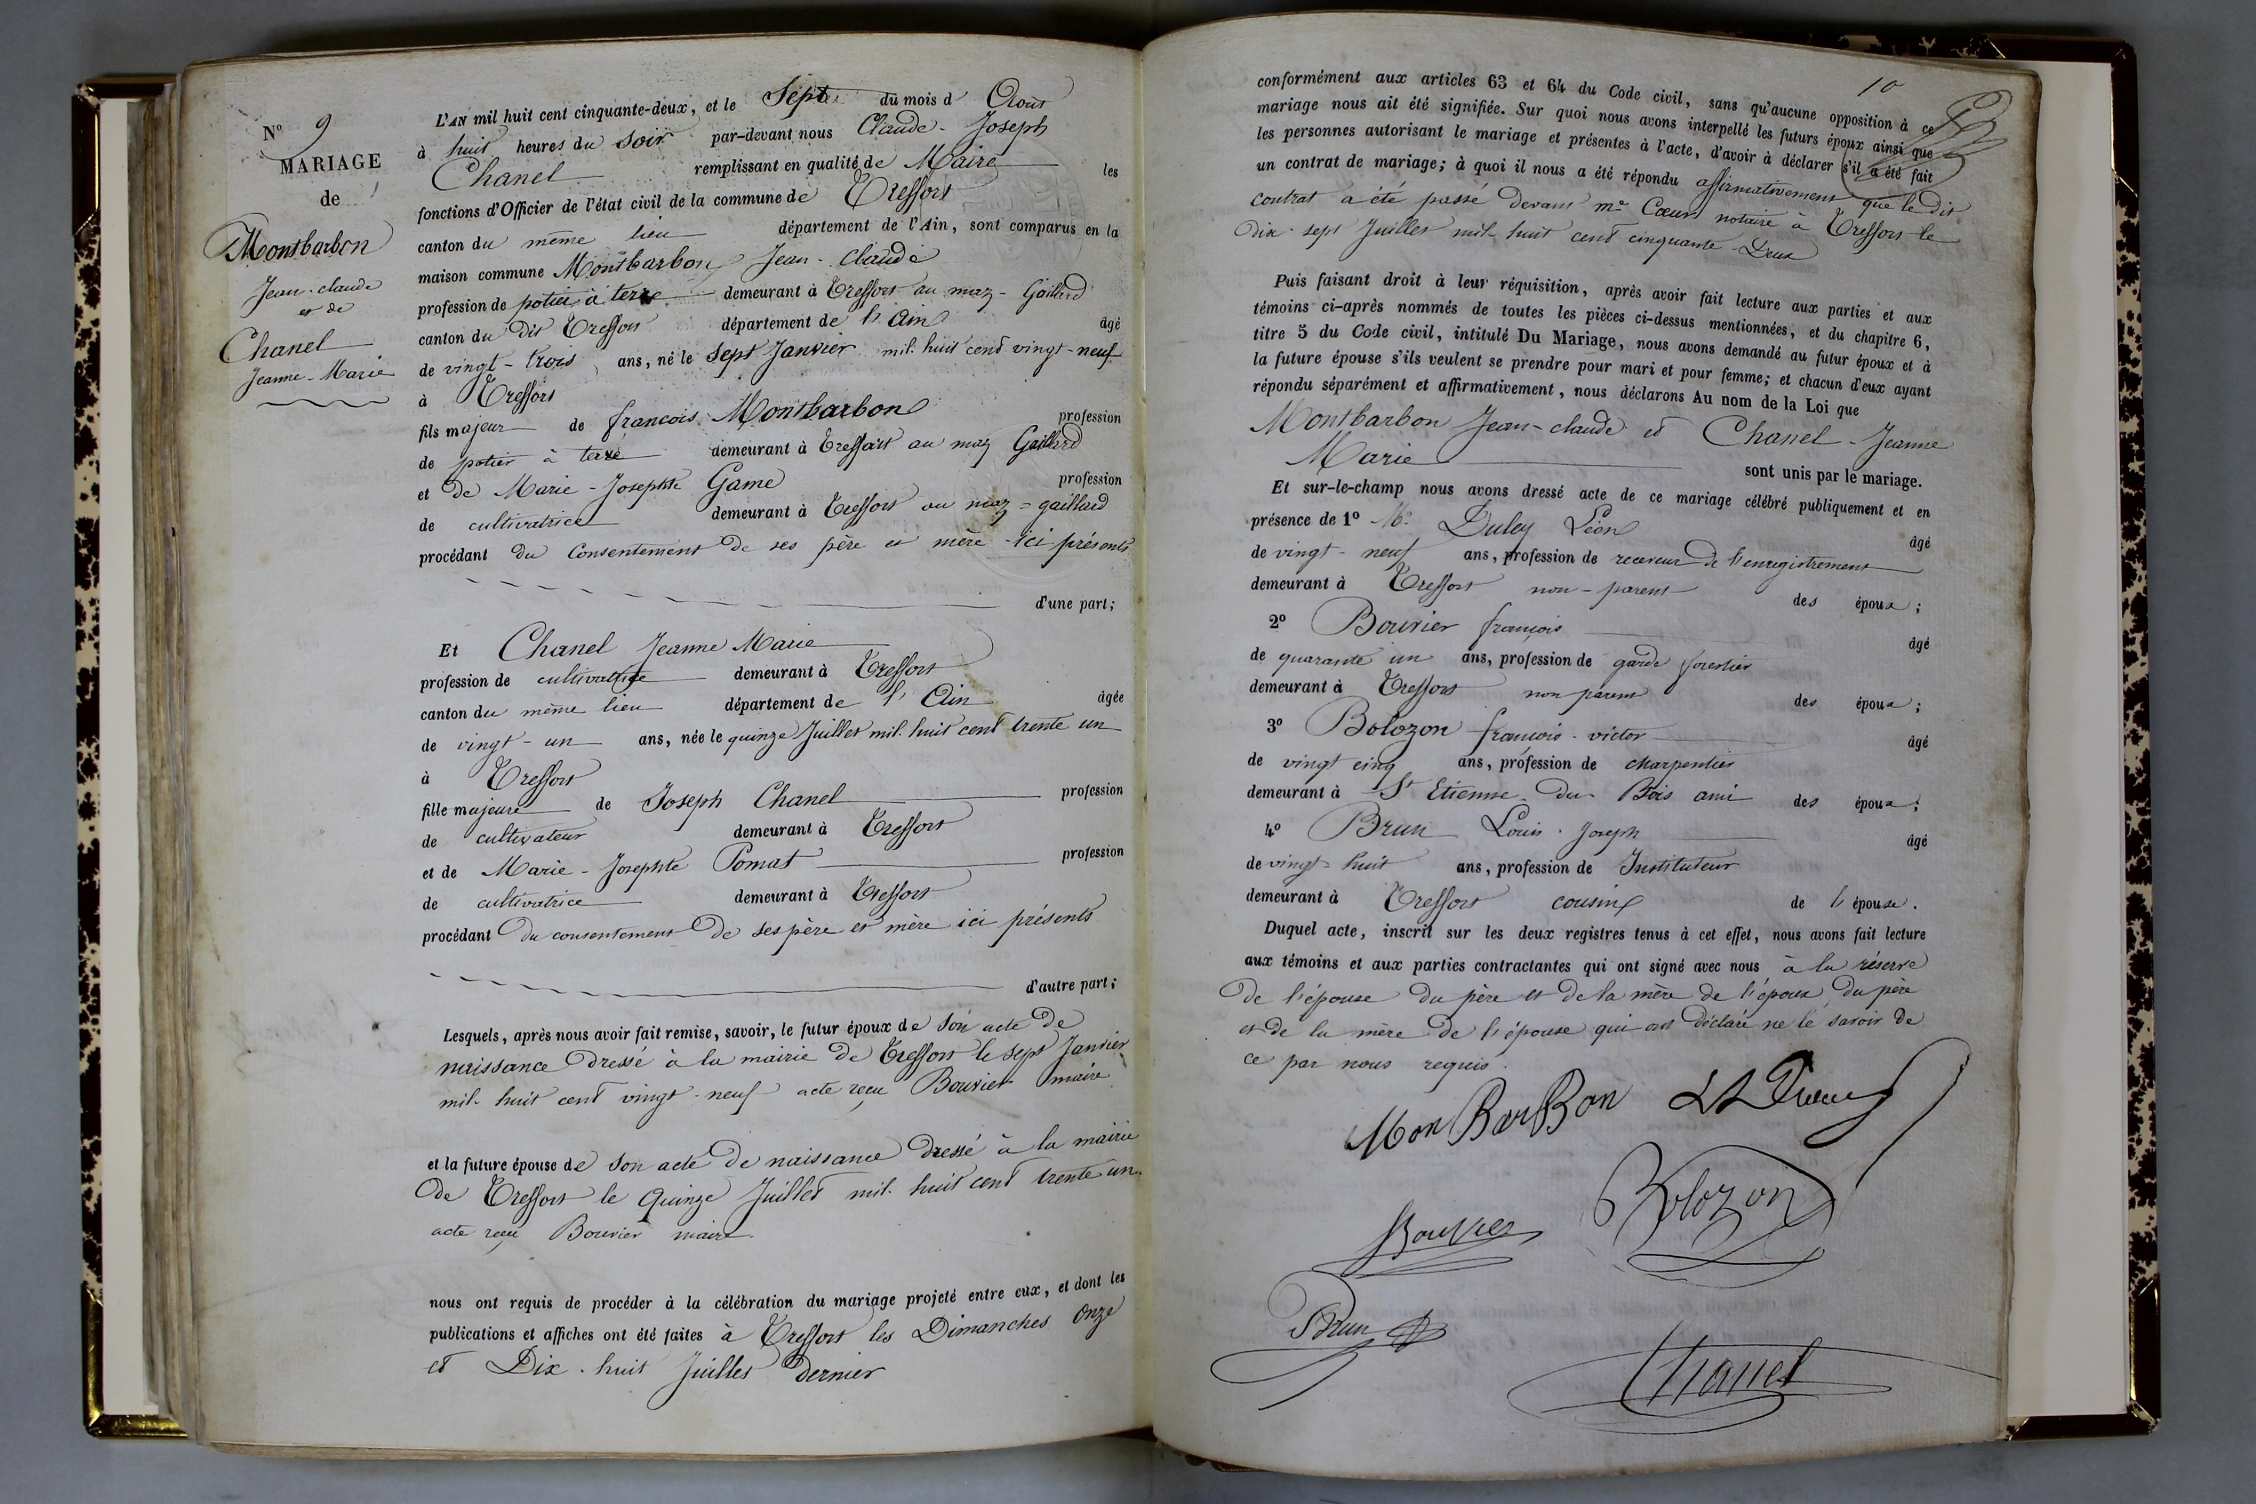 N° 9
MARIAGE
de
Montbarbon
Jean-claude
et de
Chanel
Jeanne-Marie
L'AN mil huit cent cinquante-deux, et le Sept du mois d'Août
à huit heures du soir par-devant nous Claude-Joseph
Chanel remplissant en qualité de Maire les
fonctions d'Officier de l'état civil de la commune de Treffort
canton du même lieu département de l'Ain, sont comparus en la
maison commune Montbarbon Jean-claude
profession de potier à terre demeurant à Treffort au maz-Gaillard
canton du dit Treffort département de l'Ain âgé
de vingt-trois ans, né le sept Janvier mil huit cent vingt-neuf
à Treffort
fils majeur de francois Montbarbon profession
de potier à terre demeurant à Treffort au maz Gaillard
et de Marie-Josephte Game profession
de cultivatrice demeurant à Treffort au maz-gaillard
procédant du consentement de ses père et mère ici présents
d'une part;
Et Chanel Jeanne Marie
profession de cultivatrice demeurant à Treffort
canton du même lieu département de l'Ain âgée
de vingt-un ans, née le quinze Juillet mil huit cent trente un
à Treffort
fille majeure de Joseph Chanel profession
de cultivateur demeurant à Treffort
et de Marie-Josephte Pomat profession
de cultivatrice demeurant à Treffort
procédant du consentement de ses père et mère ici présents
d'autre part;
Lesquels, après nous avoir fait remise, savoir, le futur époux de son acte de
naissance dressé à la mairie de Treffort le sept Janvier
mil huit cent vingt-neuf acte reçu Bouvier maire
et la future épouse de son acte de naissance dressé à la mairie
de Treffort le quinze Juillet mil huit cent trente un
acte reçu Bouvier maire
nous ont requis de procéder à la célébration du mariage projeté entre eux, et dont les
publications et affiches ont été faites à Treffort les Dimanches onze
et Dix-huit Juillet dernier
10
conformément aux articles 63 et 64 du Code civil, sans qu'aucune opposition à ce
mariage nous ait été signifiée. Sur quoi nous avons interpellé les futurs époux ainsi que
les personnes autorisant le mariage et présentes à l'acte, d'avoir à déclarer s'il a été fait
un contrat de mariage; à quoi il nous a été répondu affirmativement que le dit
contrat a été passé devant me Cœur notaire à Treffort le
dix-sept Juillet mil huit cent cinquante-Deux
Puis faisant droit à leur réquisition, après avoir fait lecture aux parties et aux
témoins ci-après nommés de toutes les pièces ci-dessus mentionnées, et du chapitre 6,
titre 5 du Code civil, intitulé Du Mariage, nous avons demandé au futur époux et à
la future épouse s'ils veulent se prendre pour mari et pour femme; et chacun d'eux ayant
répondu séparément et affirmativement, nous déclarons Au nom de la Loi que
Montbarbon Jean-claude et Chanel-Jeanne
Marie sont unis par le mariage.
Et sur-le-champ nous avons dressé acte de ce mariage célébré publiquement et en
présence de 1° Mr Léon âgé
de vingt-neuf ans, profession de receveur de l'enregistrement
demeurant à Treffort non-parent des époux;
2° Bouvier françois âgé
de quarante un ans, profession de garde forestier
demeurant à Treffort non parent des époux;
3° Bolozon françois-victor âgé
de vingt cinq ans, profession de charpentier
demeurant à St Etienne du Bois ami des époux;
4° Brun Louis-Joseph âgé
de vingt-huit ans, profession de Instituteur
demeurant à Treffort cousin de l'épouse.
Duquel acte, inscrit sur les deux registres tenus à cet effet, nous avons fait lecture
aux témoins et aux parties contractantes qui ont signé avec nous à la réserve
de l'épouse du père et de la mère de l'époux, du père
et de la mère de l'épouse qui ont déclaré ne le savoir de
ce par nous requis.
MonBarBon
Bolozon
Bouvier
Brun
Chanel